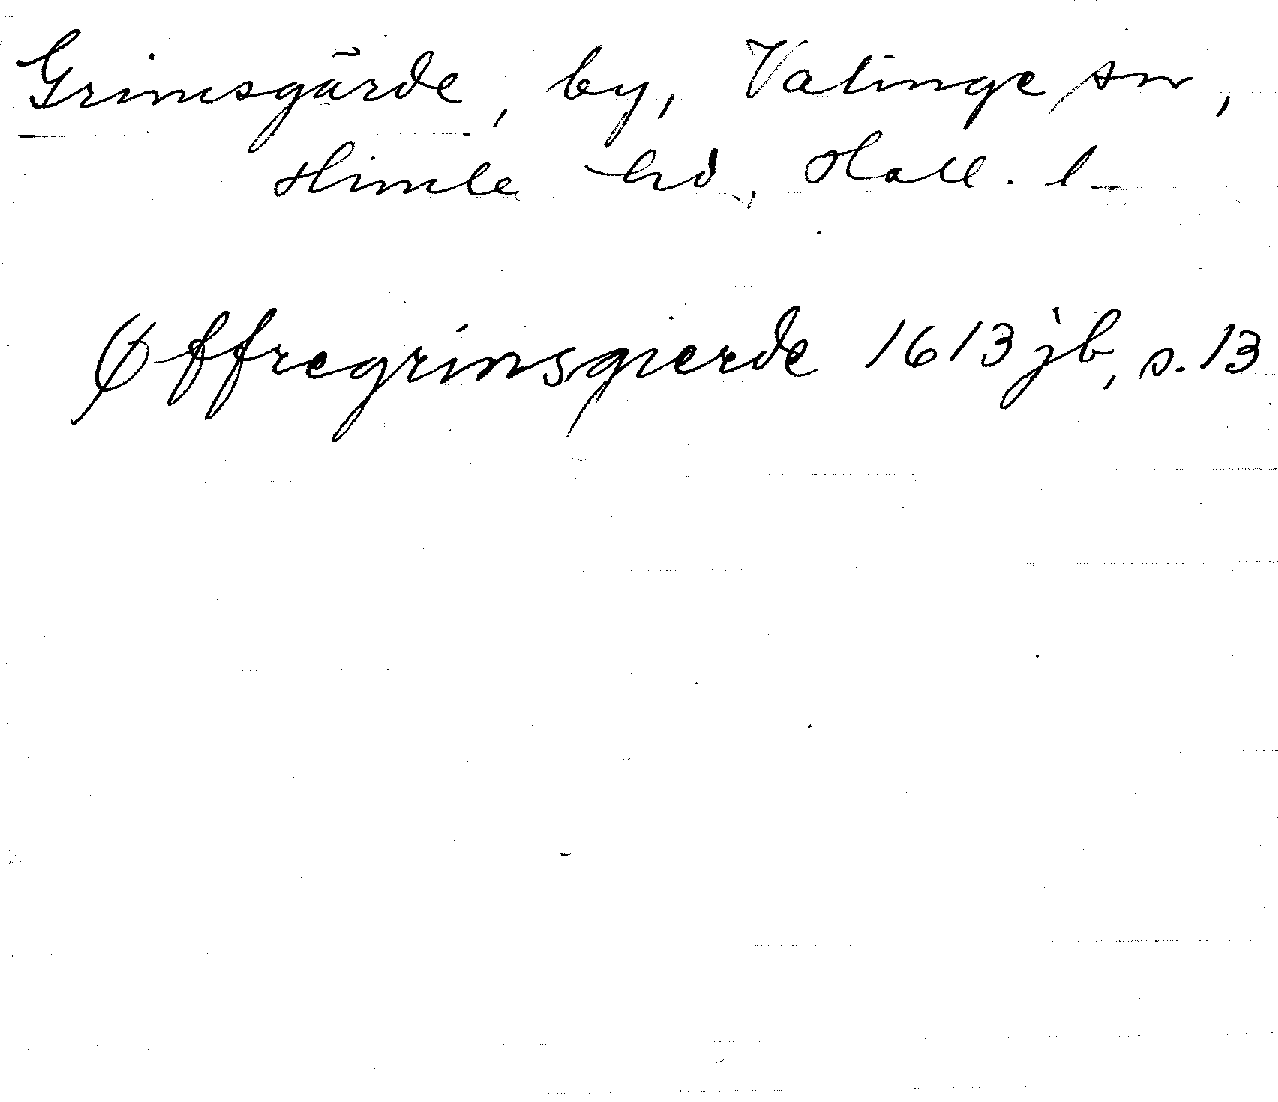 Grimsgärde, by, Valinge sn,
Himle hd, Hall. l
Øffregrinsgierde 1613 jb, s. 13